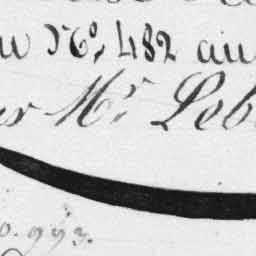 u N.º 482 au
Mr Leb
o. 993.